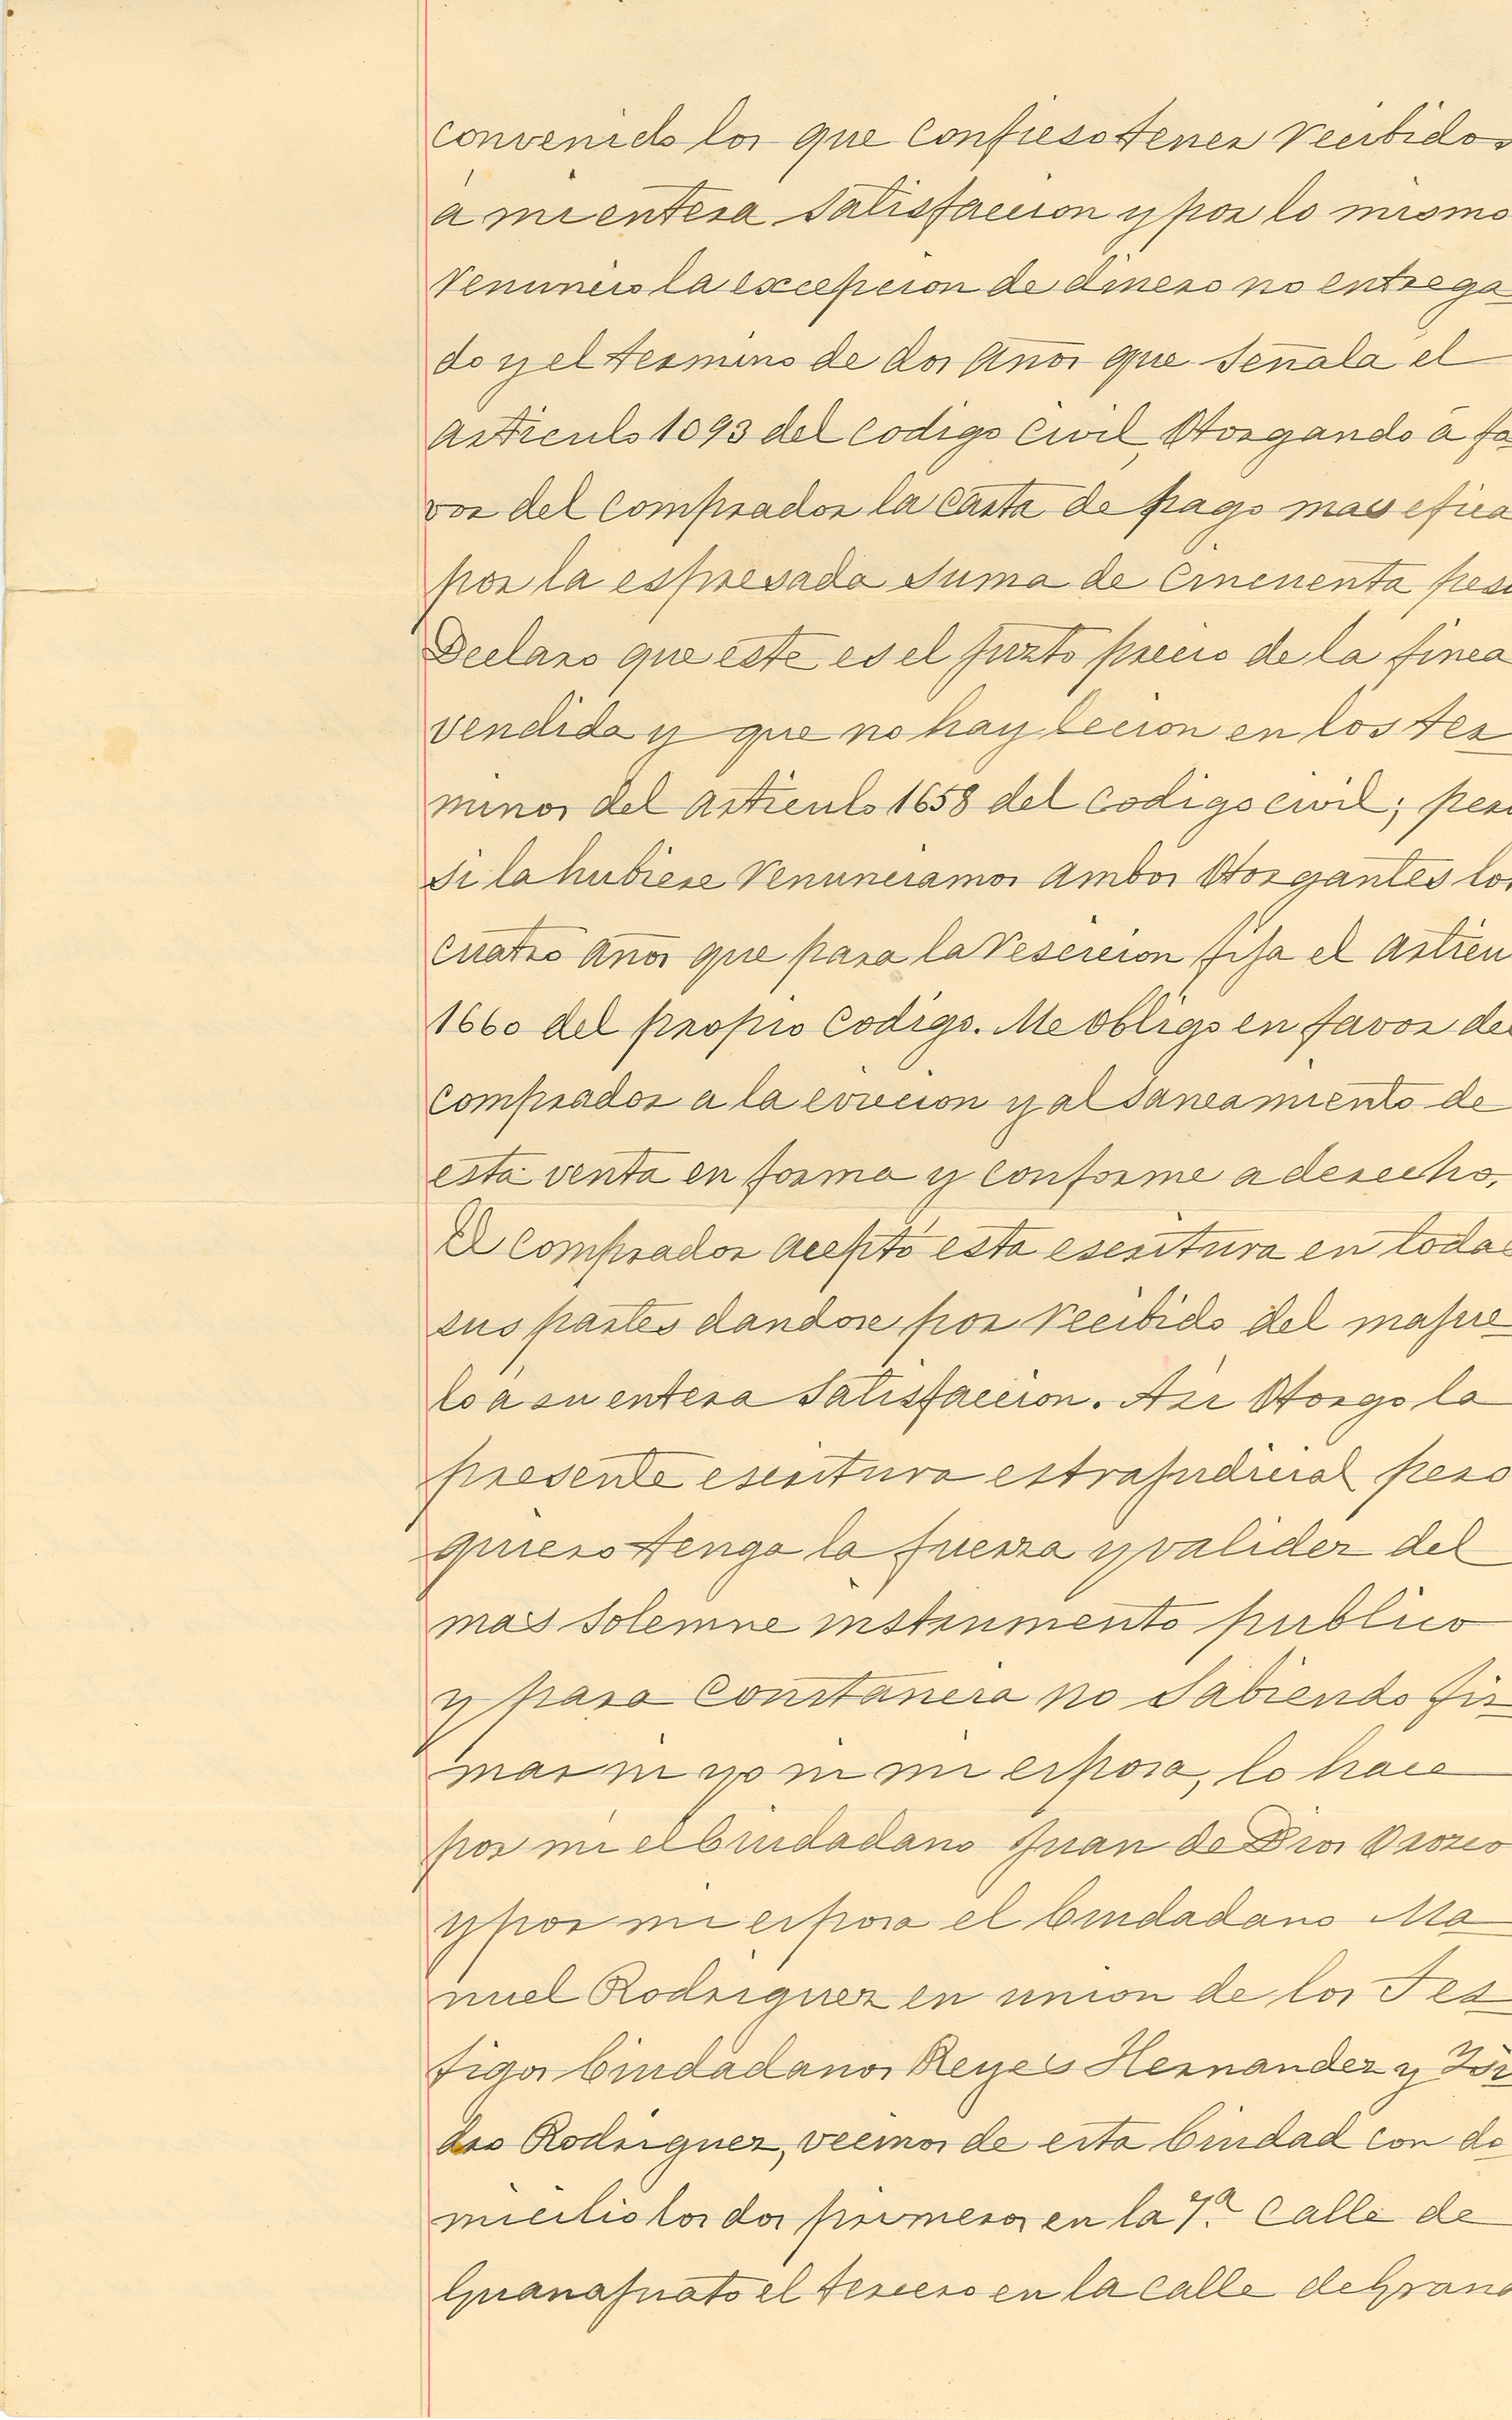 convenido los que confieso tener recibidos
á mi entera satisfaccion y por lo mismo
renuncio la excepcion de dinero no entrega
do y el termino de dos años que señala el
articulo 1093 del codigo civil, Otorgando á fa
vor del comprador la carta de pago mas efica
por la espresada suma de cincuenta pes
Declaro que este es el justo precio de la finca
vendida y que no hay lecion en los ter
minos del articulo 1658 del codigo civil; pero
si la hubiese renunciamos ambos Otorgantes los
cuatro años que para la rescicion fija el articu
1660 del propio codigo. Me obligo en favor del
comprador a la eviccion y al saneamiento de
esta venta en forma y conforme a derecho,
El comprador aceptó esta escritura en todas
sus partes dandose por recibido del majue
lo á su entera satisfaccion. Asi Otorgo la
presente escritura estrajudicial pero
quiero tenga la fuerza y validez del
mas solemne instrumento publico
y para constancia no sabiendo fir
mar ni yo ni mi esposa, lo hace
por mi el Ciudadano Juan de Dios Orozco
y por mi esposa el Ciudadano Ma
nuel Rodriguez en union de los Tes
tigos Ciudadanos Reyes Hernandez y Isi
dro Rodriguez, vecinos de esta Ciudad con do
micilio los dos primeros en la 7ª. Calle de
Guanajuato el tercero en la calle de Grana